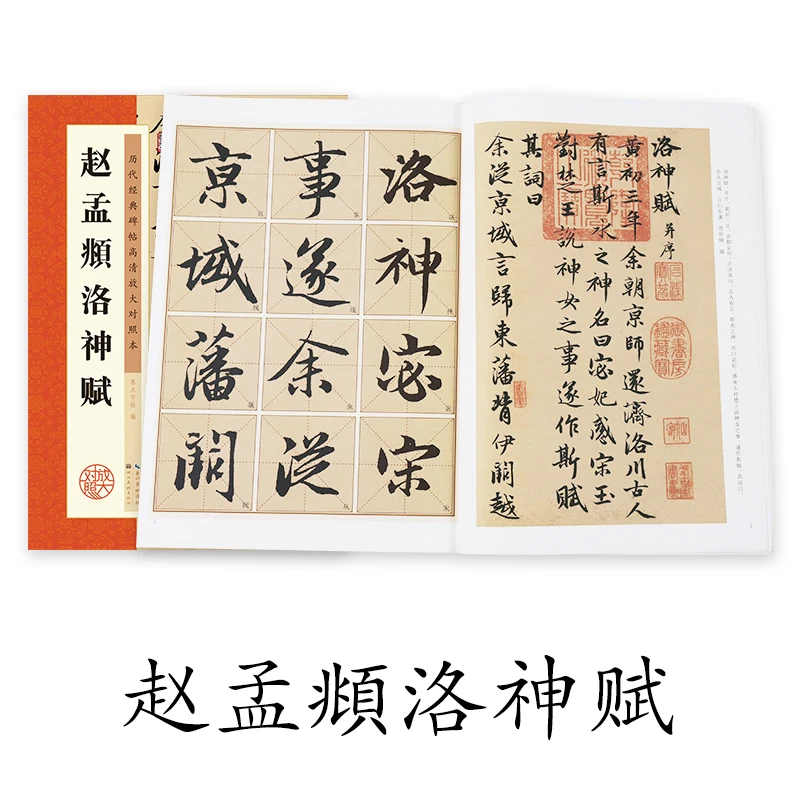 赵孟頫洛神赋
历代经典碑帖高清放大对照本
墨点字� 编
放大对照
洛神宓宋
事遂余從
京域藩闕
洛神賦 并序
黃初三年余朝京師還濟洛川古人
有言斯水之神名曰宓妃感宋玉
對楚王說神女之事遂作斯賦
其詞曰
余從京域言歸東藩背伊闕越
赵孟頫洛神赋